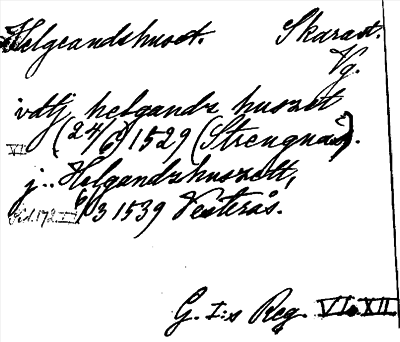 Helgeandshuset. Skarast.
Vg.
vdtj helgandz huszet
VI (24/6) 1529 (Strengnäs).
j.. Helgandzhuszett,
Sid. 172. 6/3 1539 Vesterås.
G. I:s Reg. VI. XII